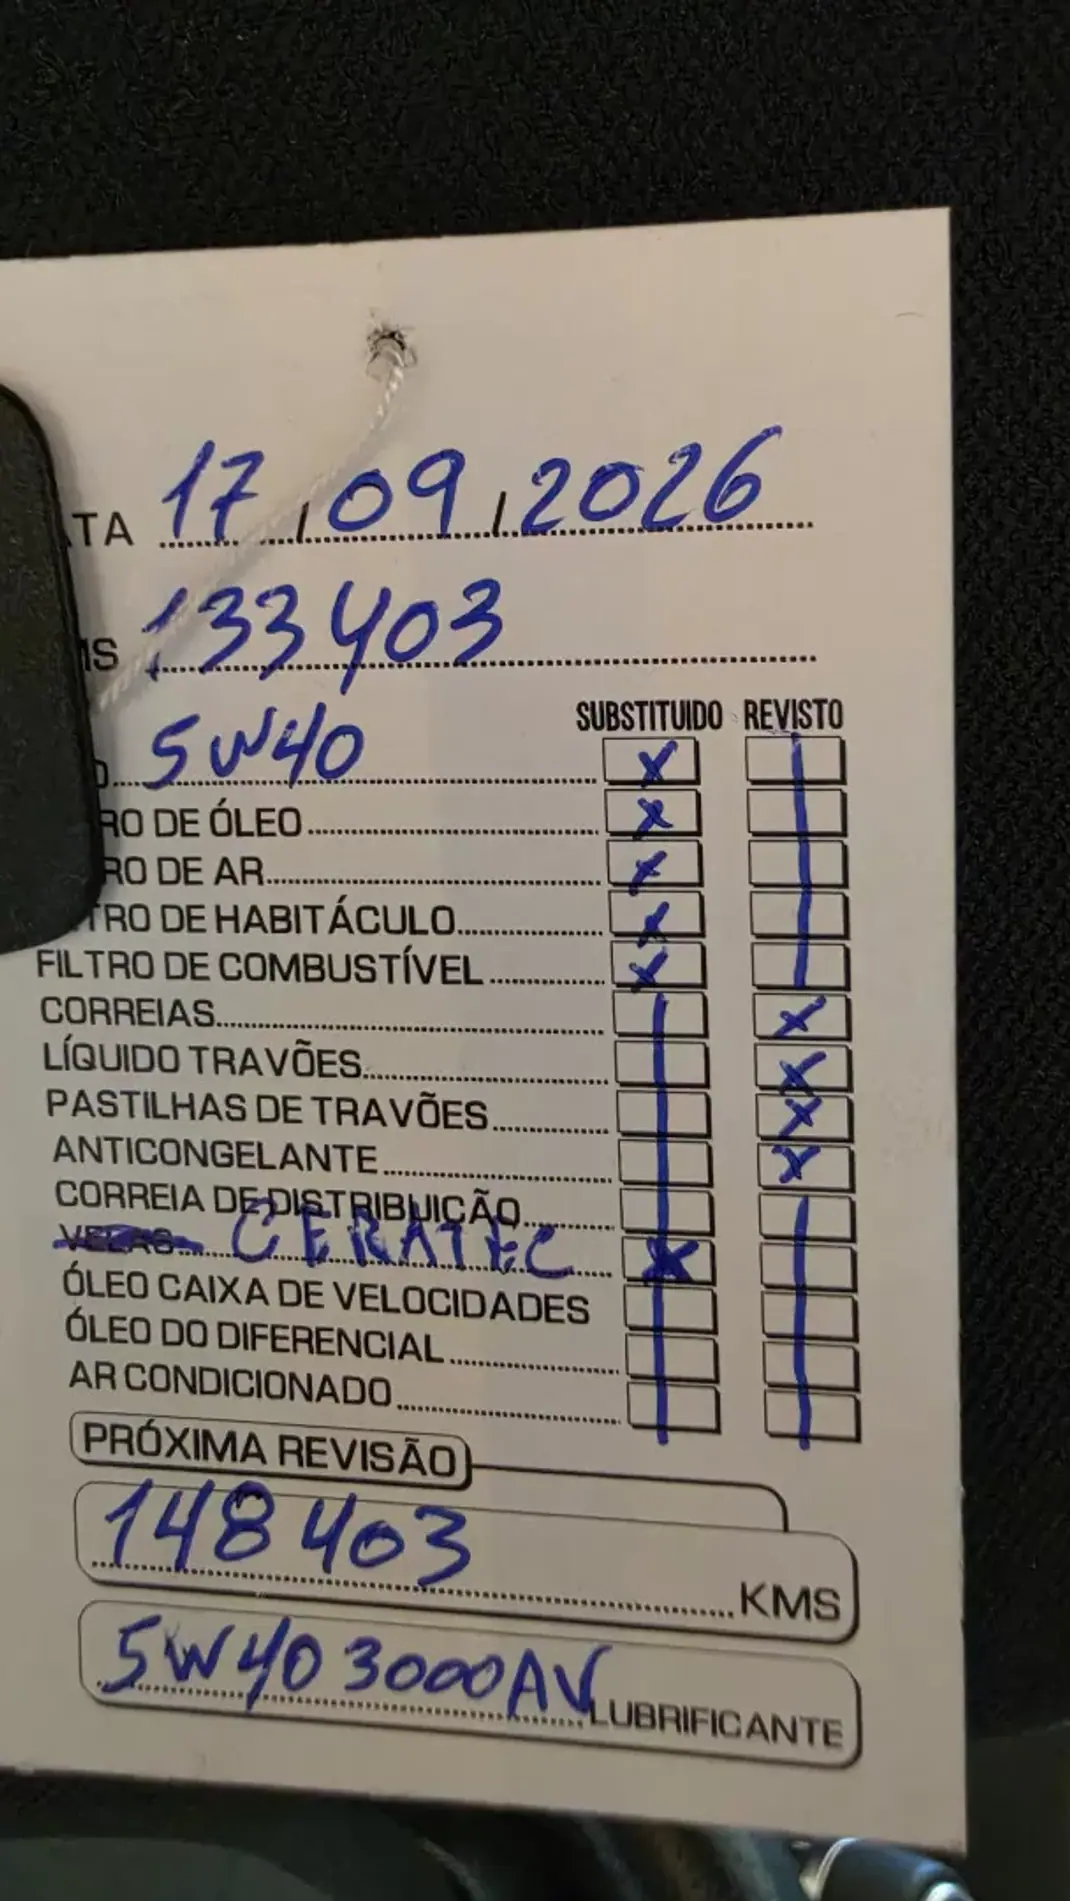 TA 17/09/2026
MS 133403
SUBSTITUIDO REVISTO
O 5W40 X
RO DE ÓLEO X
RO DE AR X
TRO DE HABITÁCULO X
FILTRO DE COMBUSTÍVEL X
CORREIAS X
LÍQUIDO TRAVÕES X
PASTILHAS DE TRAVÕES X
ANTICONGELANTE X
CORREIA DE DISTRIBUIÇÃO
VELAS CERATEC X
ÓLEO CAIXA DE VELOCIDADES
ÓLEO DO DIFERENCIAL
AR CONDICIONADO
PRÓXIMA REVISÃO
148403 KMS
5W40 3000AV LUBRIFICANTE